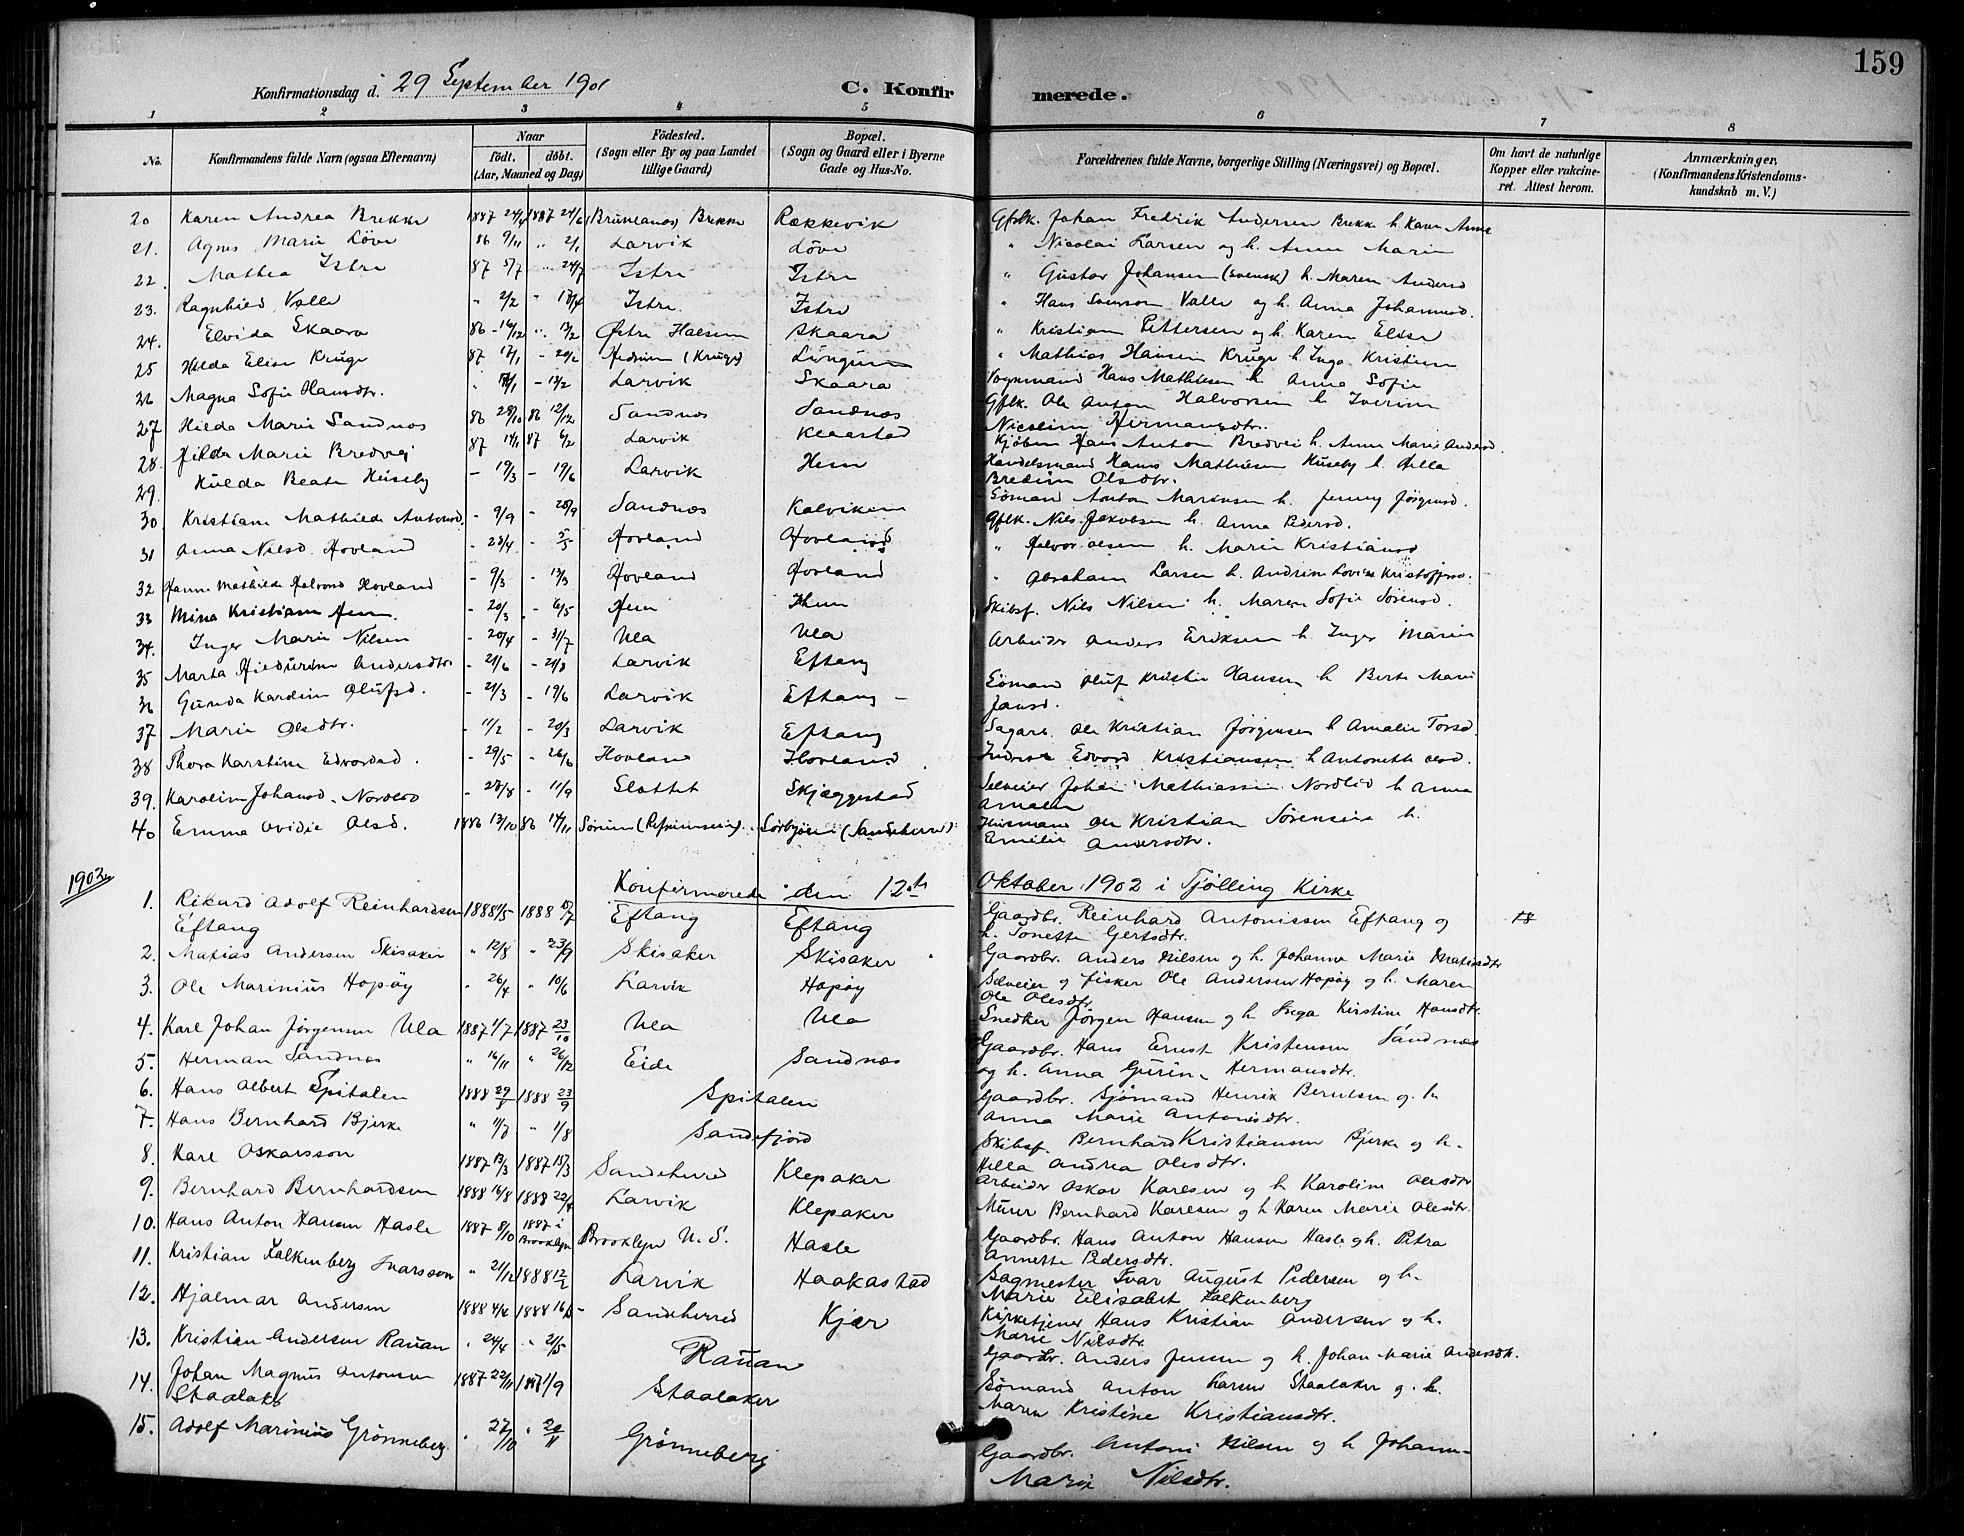 159
Konfirmationsdag d. 29 September 1901 C. Konfirmerede.
1 2 3 4 5 6 7 8
No. Konfirmandens fulde Navn (ogsaa Efternavn) Naar født. døbt. (Aar, Maaned og Dag) Födested. (Sogn eller By og paa Landet tillige Gaard) Bopæl. (Sogn og Gaard eller i Byerne Gade og Hus-No. Forældrenes fulde Navne, borgerlige Stilling (Næringsvei) og Bopæl. Om havt de naturlige Kopper eller vakcineret. Attest herom. Anmærkninger, (Konfirmandens Kristendomskundskab m. V.)
20 Karen Andrea Brekke 1887 24/4 1887 24/6 (Brunlanes) Brekke Rækkevik Gflk. Johan Fredrik Andersen Brekke h. Karen Anne
21. Agnes Marie Löve 86 9/11 " 2/1 Larvik Löve " Nicolai Larsen og h. Anne Marie
22. Mathea Istre 87 5/7 " 24/7 Istre Istre " Gustav Johansen (svensk) h. Maren Andersd
23. Ragnhild Valle " 2/2 " 17/4 Istre. Istre " Hans Svensson Valle og h. Anna Johannesd.
24. Elvida Skaara 86 - 16/12 " 13/2 Østre Halsen Skaara " Kristian Pettersen og h. Karen Elise
25 Hilda Elise Kruge 87 17/1 - 20/2 Hedrum (Kruge) Lüngün " Mathias Hansen Kruge h Inga Kristine
26 Magna Sofie Hansdtr. " /1 - 13/2 Larvik Skaara Vognmand Hans Mathisen h. Anna Sofie
27 Hilda Marie Sandnes 86 28/10 86 12/12 Sandnes Sandnes Gflk. Ole Anton Halvorsen h. Iverine
Nicoline Hermansdtr.
28. Hilda Marie Bredvei 87 14/1 87 6/2 Larvik Klaastad Kjøbm Hans Anton Bredvei h. Anne Marie Andersd.
29. Hulda Beate Huseby - 19/3 - 19/6 Larvik Hem Handelsmand Hans Mathisen Huseby h. Hella
Bredine Olsdtr.
30 Kristiane Mathilde Antonsd. - 9/9 - 28/9 Sandnes Kalviken Sömand Anton Marensen h. Jenny Jörgensd.
31 Anna Nilsd. Hovland - 23/4 - 5/5 Hovland Hovland Gflk. Nils Jakobsen h. Anna Pedersd.
32 Hanne Mathilde Halvorsd Hovland - 9/3 - 13/3 Hovland Hovland " Halvor Olsen h. Marie Kristiansd
33 Mina Kristiane Hem. - 20/3 - 6/5 Hem Hem " Abraham Larsen h. Andrine Lovise Kristoffersd.
34. Inger Marie Nilsen - 20/4 - 31/7 Ula Ula Skibsf. Nils Nilsen h. Maren Sofie Sörensd.
35 Marta Andersdtr - 21/6 - 21/8 Larvik Eftang Arbeider Anders Eriksen h. Inger Marie
36 Gunda Karoline Olufsd. - 21/3 - 19/6 Larvik Eftang - Sömand Oluf Kristian Hansen h. Berte Marie
Jansd.
37 Marie Olsdtr. - 11/2 - 20/3 Larvik Eftang Sagarb. Ole Kristian Jörgensen h Amalie Torsd.
38 Thora Karstine Edvardsd. - 29/5 - 26/6 Hovland Hovland. Inderst Edvard Kristiansen h Antonette Olsd.
39. Karoline Johansd. Nordlid - 28/8 - 11/9 Slottet Skjæggestad Selveier Johan Mathiassen Nordlid h Anna
Amalie
40 Emma Ovidie Olsd. 1886 13/10 86 14/11 Sörum Sörbyöen (Sandeherred) Husmand Ole Kristian Sörensen h.
Emilie Andersdtr.
1902 Konfirmerede den 12te Oktober 1902 i Tjölling Kirke
1. Rikard Adolf Reinhardsen 1888 1/5 1888 15/7 Eftang Eftang Gaardbr. Reinhard Antonissen Eftang og 18
Eftang h. Tonette Gertsdtr.
2. Matias Andersen Skisaker " 12/8 " 23/9 Skisaker Skisaker Gaardbr. Anders Nilsen og h. Johanne Marie Matisdtr
3. Ole Marinius Hapøy " 26/4 " 10/6 Larvik Hapøy Selveier og fisker Ole Andersen Hapøy og h. Maren
Ole Olesdtr
4. Karl Johan Jørgensen Ula 1887 1/7 1887 23/10 Ula Ula Snedker Jørgen Hansen og h. Inga Kirstine Hansdtr.
5. Herman Sandnes " 16/11 " 26/12 Eide Sandnæs Gaardbr. Hans Ernst Kristensen Sandnæs
og h. Anna Gurine Hermansdtr.
6. Hans Albert Spitalen 1888 29/8 1888 23/9 Spitalen Gaardbr. Sjømand Henrik Berntsen og h
Anna Marie Antonisdtr.
7. Hans Bernhard Bjerke " 1/7 " 1/8 Sandefjord Skibsf. Bernhard Kristiansen Bjerke og h.
Hella Andrea Olesdtr.
8. Karl Oskarsson 1887 13/3 1887 15/3 Sandeherred Klepaker Arbeider Oskar Karlsen og h Karoline Olesdtr
9. Bernhard Bernhardsen 1888 16/8 1888 22/4 Larvik Klepaker Murer Bernhard Karlsen og h Karen Marie Olesdtr.
10. Hans Anton Hansen Hasle 1887 8/10 1887 i Brooklyn Brooklyn U. S. Hasle Gaardbr. Hans Anton Hansen Hasle og h. Petra
Annette Pedersdtr.
11. Kristian Falkenberg Ivarsson " 21/12 1888 12/2 Larvik Haakastad Sagmester Ivar August Pedersen og h.
Marie Elisabet Falkenberg
12. Hjalmar Andersen 1888 4/4 1888 16/6 - Sandeherred Kjær Kirketjener Hans Kristian Andersen og h.
Marie Nilsdtr.
13. Kristian Andersen Rauan " 24/4 " 21/5 Rauan Gaardbr. Anders Jensen og h. Johan Marie Andersdtr.
14. Johan Magnus Antonsen 1887 22/11 1887 1/9 Staalaker Sømand Anton Larsen Staalaker og h.
Staalaker Maren Kristine Kristiansdtr.
15. Adolf Marinius Grönneberg " 27/10 " 20/11 Grönneberg Gaardbr. Antoni Nilsen og h Johanne
Marie Nilsdtr.